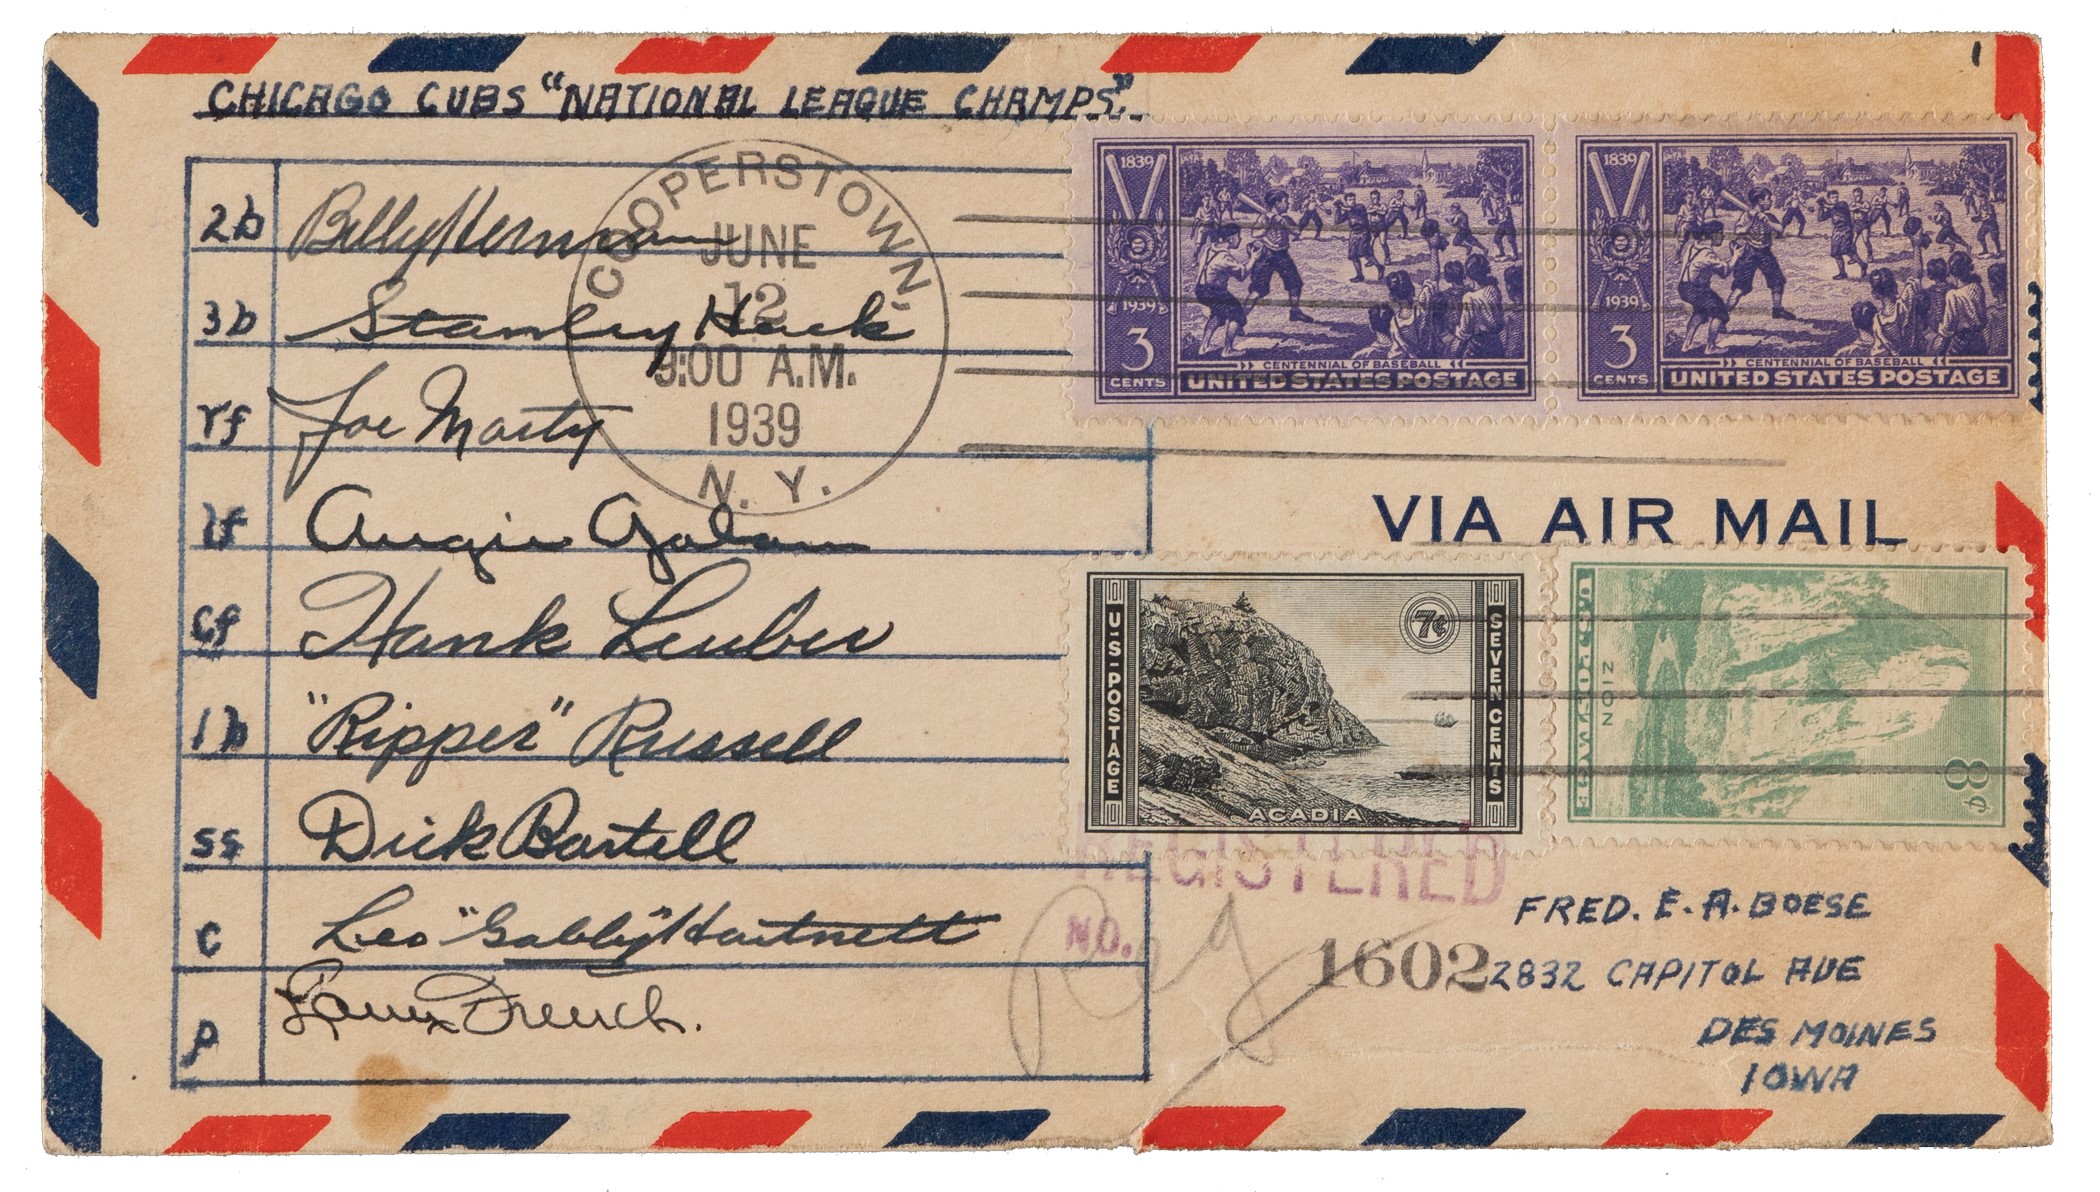 CHICAGO CUBS "NATIONAL LEAGUE CHAMPS."
2b Billy Herman
3b Stanley Hack
rf Joe Marty
lf Augie Galan
cf Hank Leiber
1b "Ripper" Russell
ss Dick Bartell
c Leo "Gabby" Hartnett
p Larry French.
COOPERSTOWN.
JUNE
12
9:00 A.M.
1939
N. Y.
1839
1939
3
CENTS
CENTENNIAL OF BASEBALL
UNITED STATES POSTAGE
1839
1939
3
CENTS
CENTENNIAL OF BASEBALL
UNITED STATES POSTAGE
VIA AIR MAIL
U·S·POSTAGE
7¢
SEVEN CENTS
ACADIA
U.S. POSTAGE
ZION
8¢
REGISTERED
NO.
Reg
1602
FRED. E. A. BOESE
2832 CAPITOL AVE
DES MOINES
IOWA